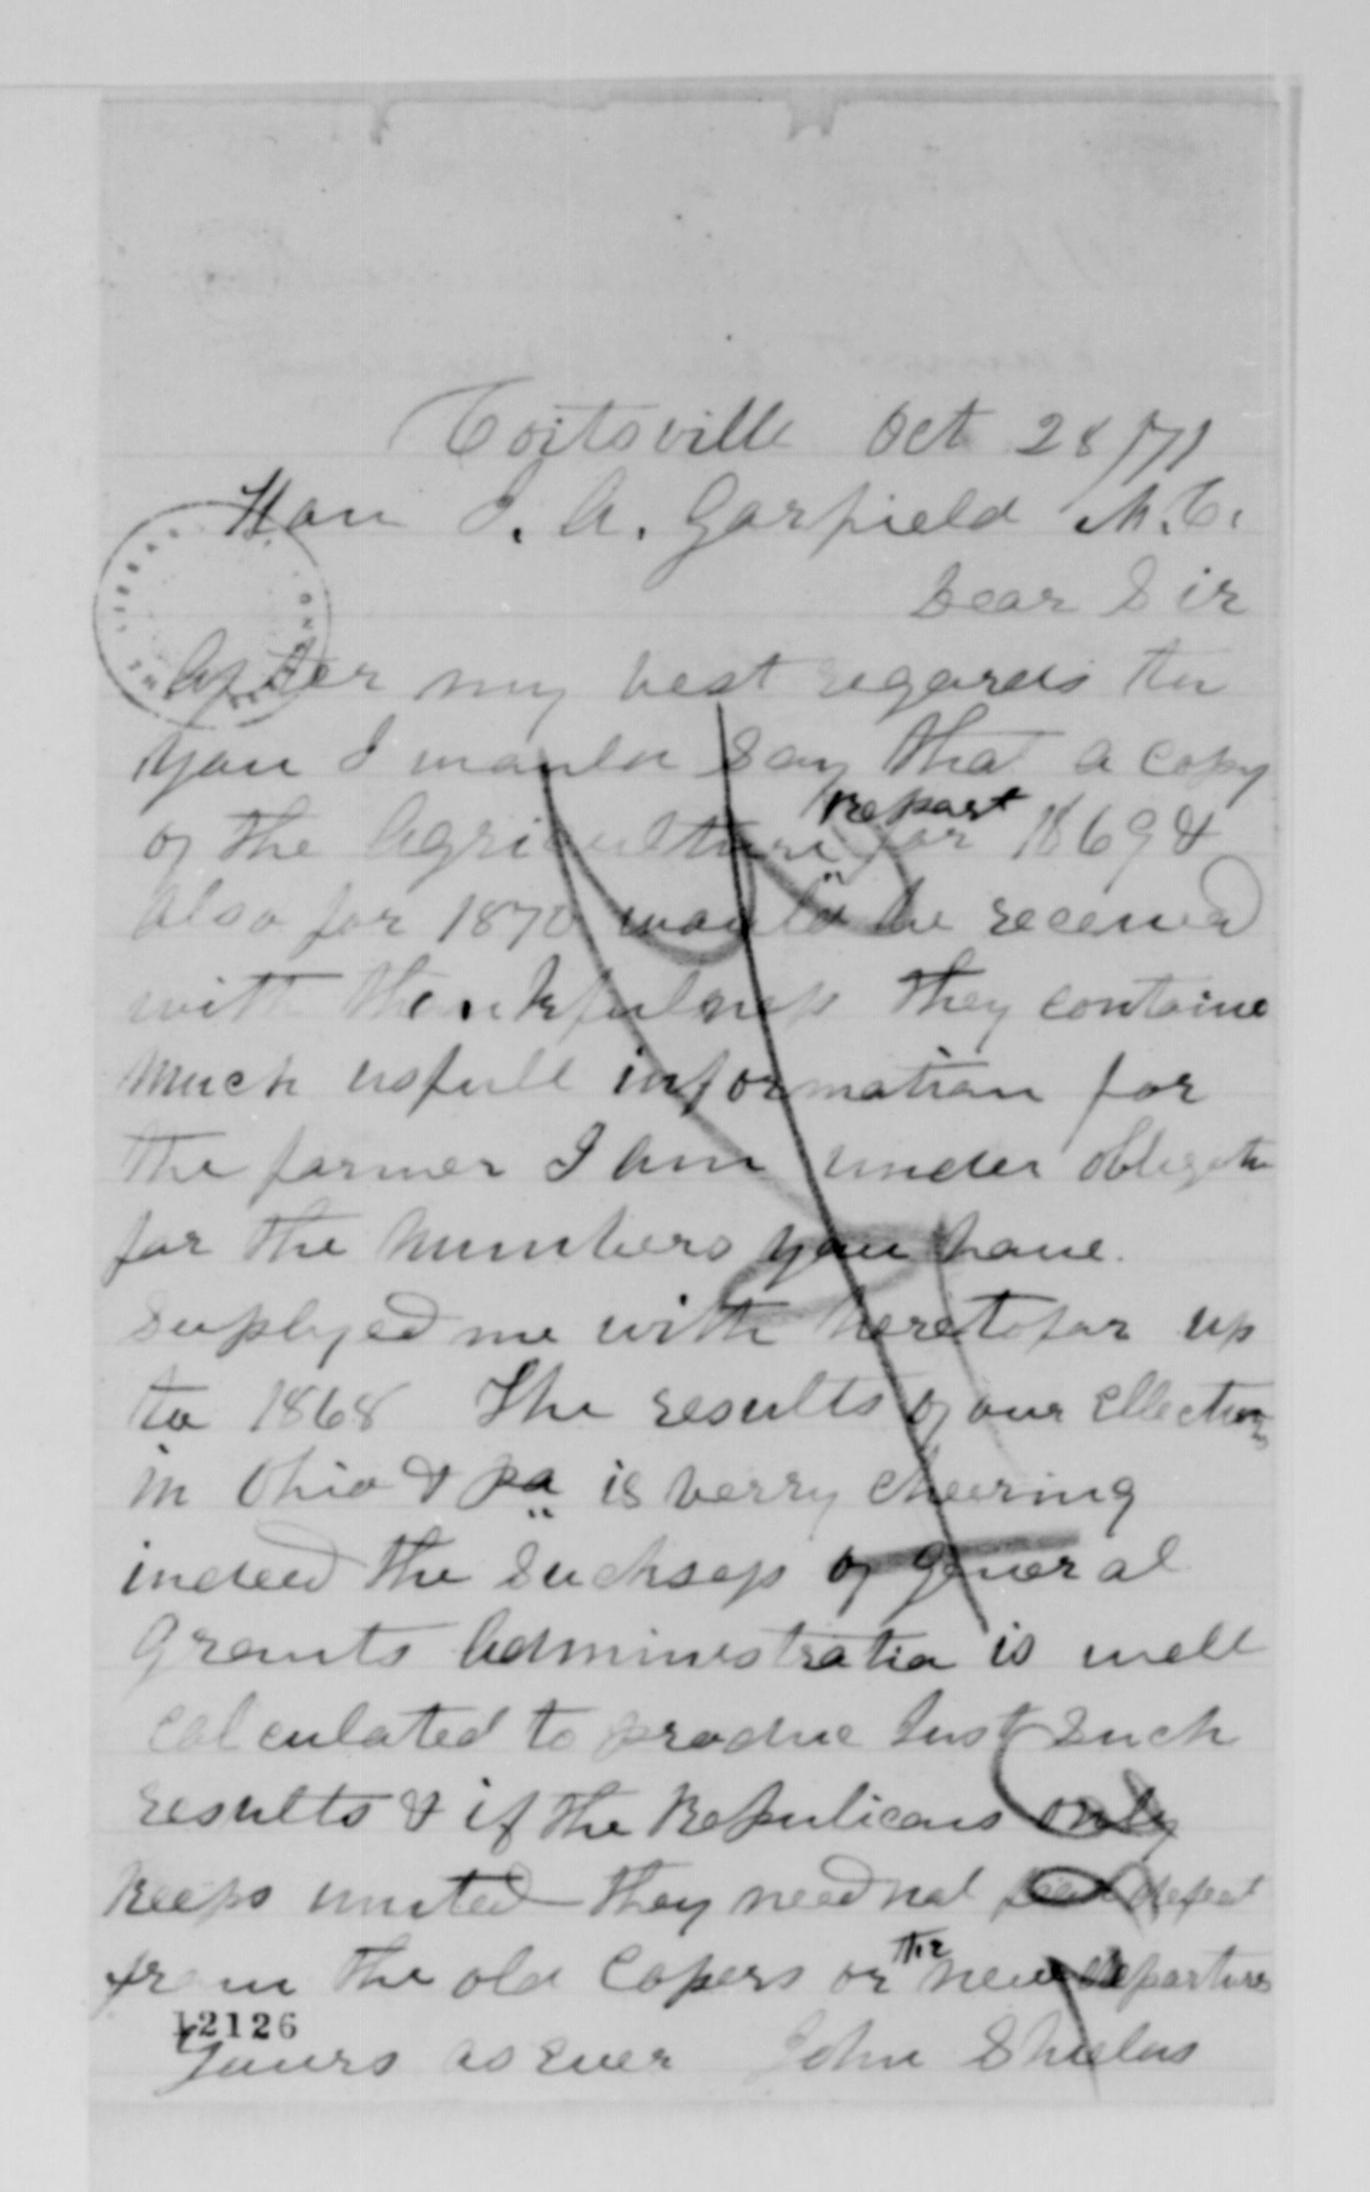 Coitsville Oct 28/71
Hon J. A. Garfield M.C.
Dear Sir
After my best regards to
you I would say that a copy
of the Agriculture Report for 1869 &
also for 1870 would be received
with thankfulness they containe
much usfull information for
the farmer I am under obligati
for the numbers you have
suplyed me with heretofor up
to 1868 The results of our Ellections
in Ohio & Pa is verry cheering
indeed the Suckses of General
Grants Administratin is well
calculated to produce Just such
results & if the Republicans only
keeps united they need not fear defeat
from the old Copers or the new departures
12126
Yours as ever John Shields